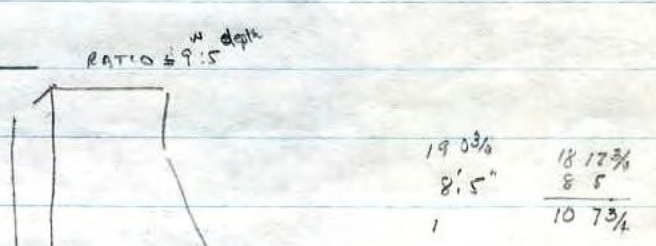 RATIO = 9:5
W depth
19 0 3/4
8' 5"
1
18 12 3/4
8 5
10 7 3/4